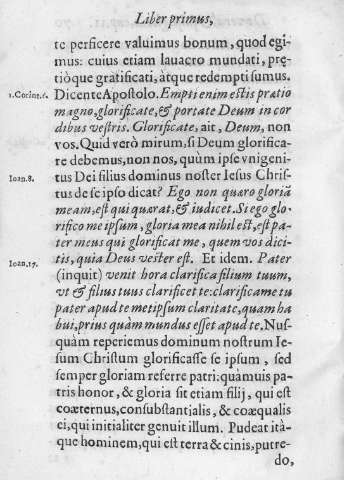 Liber primus,
te perficere valuimus bonum, quod egi-
mus: cuius etiam lauacro mundati, prę-
tióque gratificati, àtque redempti sumus.
1.Corint.6. Dicente Apostolo. Empti enim estis pratio
magno, glorificate, & portate Deum in cor
dibus vestris. Glorificate, ait, Deum, non
vos. Quid verò mirum, si Deum glorifica-
re debemus, non nos, quùm ipse vnigeni-
tus Dei filius dominus noster Iesus Chris-
Ioan.8. tus de se ipso dicat? Ego non quæro gloriã
meam, est qui quærat, & iudicet. Si ego glo-
rifico me ipsum, gloria mea nihil est, est pa-
ter meus qui glorificat me, quem vos dici-
tis, quia Deus vester est. Et idem. Pater
Ioan.17. (inquit) venit hora clarifica filium tuum,
vt & filius tuus clarificet te: clarifica me tu
pater apud temetipsum claritate, quam ha
bui, prius quàm mundus esset apud te. Nus-
quàm reperiemus dominum nostrum Ie-
sum Christum glorificasse se ipsum, sed
semper gloriam referre patri: quámuis pa-
tris honor, & gloria sit etiam filij, qui est
coæternus, consubstantialis, & coæqualis
ei, qui initialiter genuit illum. Pudeat itâ-
que hominem, qui est terra & cinis, putre-
do,